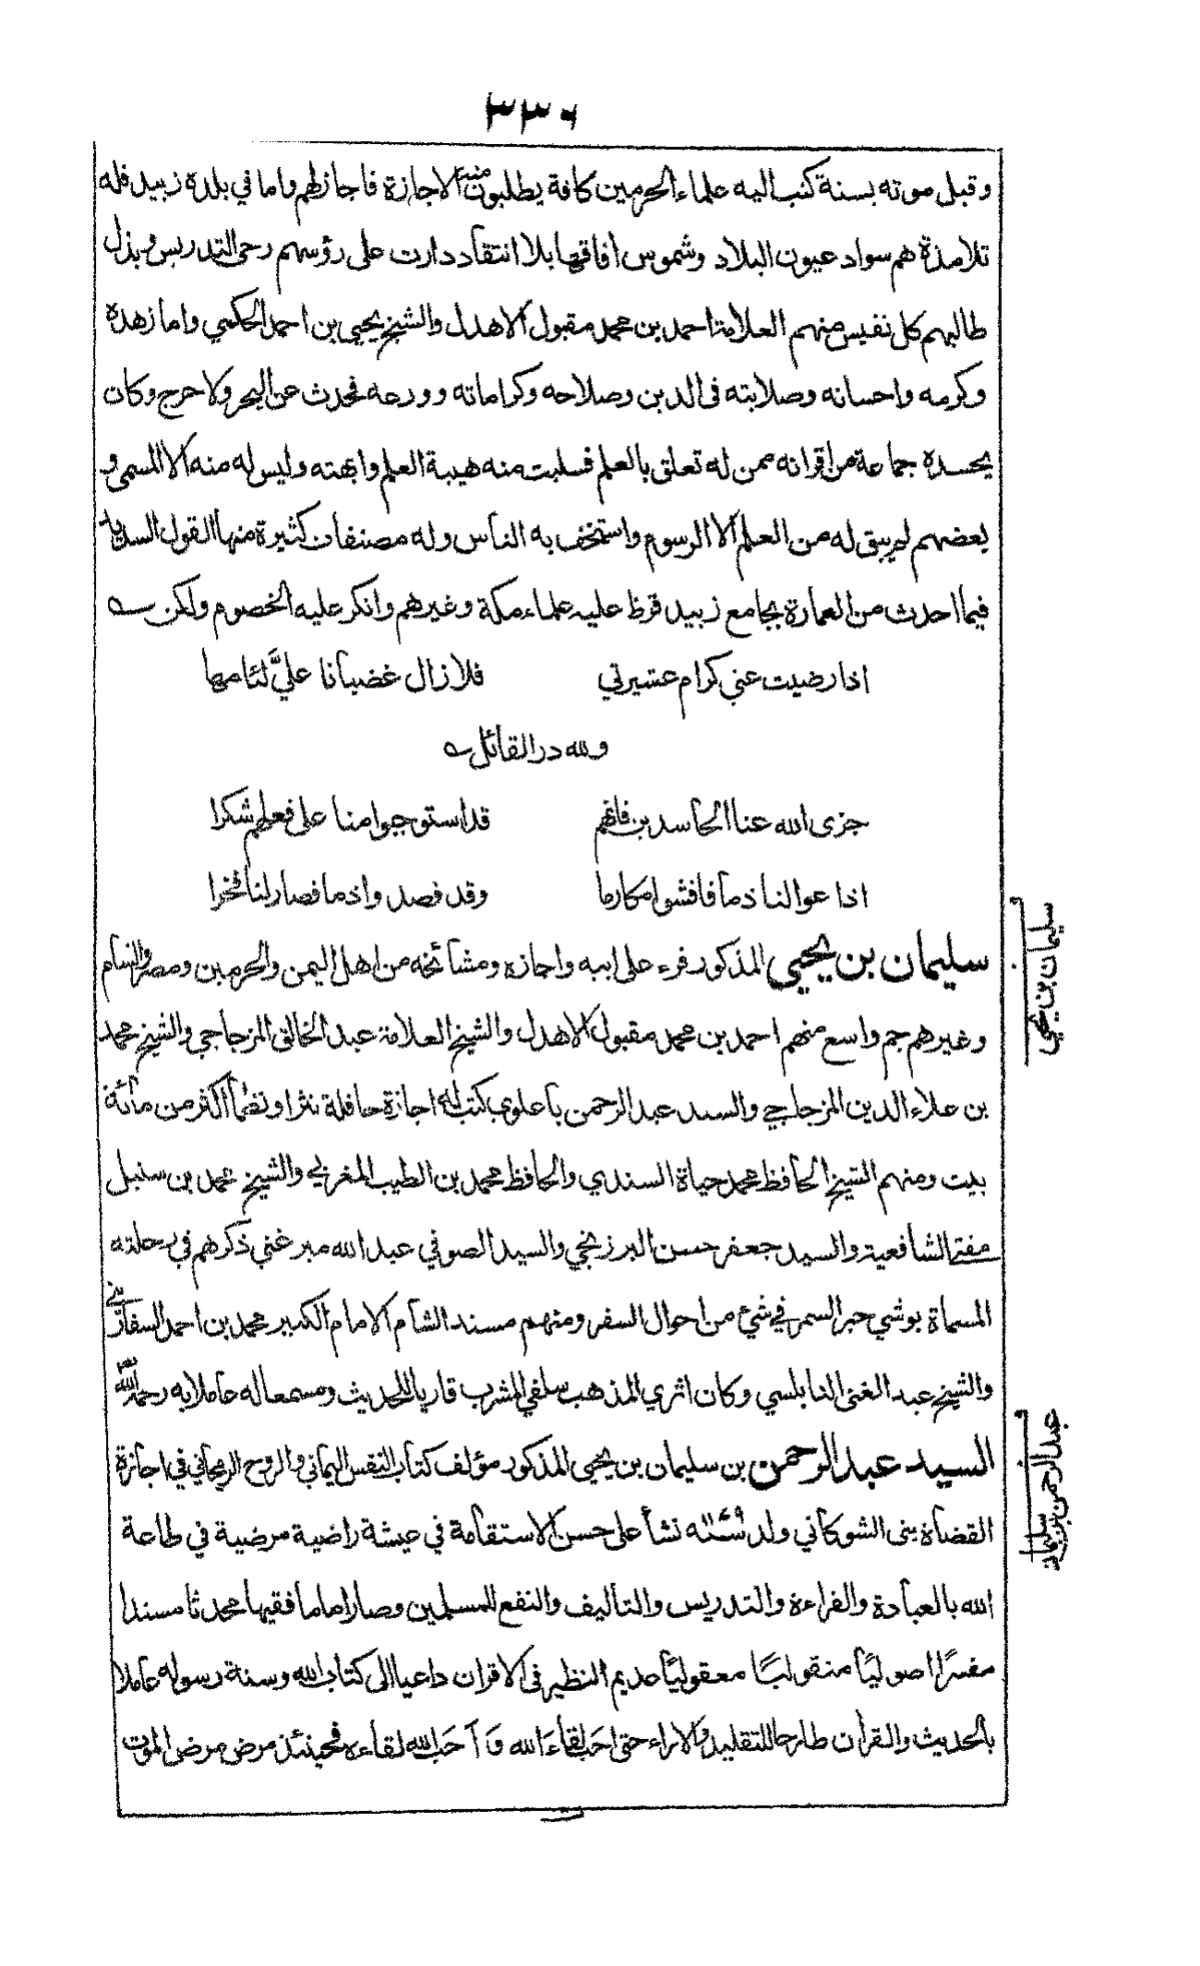 ٣٣٦
وقبل موته بسنة كتب اليه علماء الحرمين كافة يطلبون منه الاجازة فاجاز لهم واما في بلده زبيد فله
تلامذة هم سواد عيون البلاد وشموس افاقها بلا انتقاد دارت على رؤسهم رحى التدريس وبذل
طالبهم كل نفيس منهم العلامة احمد بن محمد مقبول الاهدل والشيخ يحيى بن احمد الحكمي واما زهده
وكرمه واحسانه وصلابته في الدين وصلاحه وكراماته وورعه فحدث عن البحر ولا حرج وكان
يحسده جماعة من اقرانه ممن له تعلق بالعلم فسلبت منه هيبة العلم وابهته وليس له منه الا المسمى و
بعضهم لم يبق له من العلم الا الرسوم واستخف به الناس وله مصنفات كثيرة منها القول السديد
فيما احدث من العمارة بجامع زبيد قرظ عليه علماء مكة وغيرهم وانكر عليه الخصوم ولكن
اذا رضيت عني كرام عشيرتي فلا زال غضبانا عليَّ لئامها
ولله در القائل
جزى الله عنا الحاسدين فانهم قد استوجبوا منا على فعلهم شكرا
اذاعوا لنا ذما فافشوا مكارما وقد قصدوا ذما فصار لنا فخرا
سليمان بن يحيى المذكور قرء على ابيه واجازه ومشائخه من اهل اليمن والحرمين ومصر والشام
وغيرهم جم واسع منهم احمد بن محمد مقبول الاهدل والشيخ العلامة عبد الخالق المزجاجي والشيخ محمد
بن علاء الدين المزجاجي والسيد عبد الرحمن باعلوي كتب له اجازة حافلة نثرا ونظما اكثر من مائة
بيت ومنهم الشيخ الحافظ محمد حياة السندي والحافظ محمد بن الطيب المغربي والشيخ محمد بن سنبل
مفتي الشافعية والسيد جعفر حسن البرزنجي والسيد الصوفي عبد الله ميرغني ذكرهم في رحلته
المسماة بوشي حبر السمر في شئ من احوال السفر ومنهم مسند الشام الامام الكبير محمد بن احمد السفاريني
والشيخ عبد الغني النابلسي وكان اثري المذهب سلفي المشرب قاريا للحديث ومسمعا له عاملا به رحمه الله
السيد عبد الرحمن بن سليمان بن يحيى المذكور مؤلف كتاب النفس اليماني والروح الريحاني في اجازة
القضاة بنى الشوكاني ولد سنة ١١٧٩ه نشأ على حسن الاستقامة في عيشة راضية مرضية في طاعة
الله بالعبادة والقراءة والتدريس والتاليف والنفع للمسلمين وصار اماما فقيها محدثا مسندا
مفسرًا اصوليًا منقوليًا معقوليًا عديم النظير في الاقران داعيا الى كتاب الله وسنة رسوله عاملا
بالحديث والقرأن طارحا للتقليد والاراء حتى احب لقاءَ الله وَاَحَب الله لقاءه فحينئذ مرض مرض الموت
سليمان بن يحيى
عبد الرحمن بن سليمان